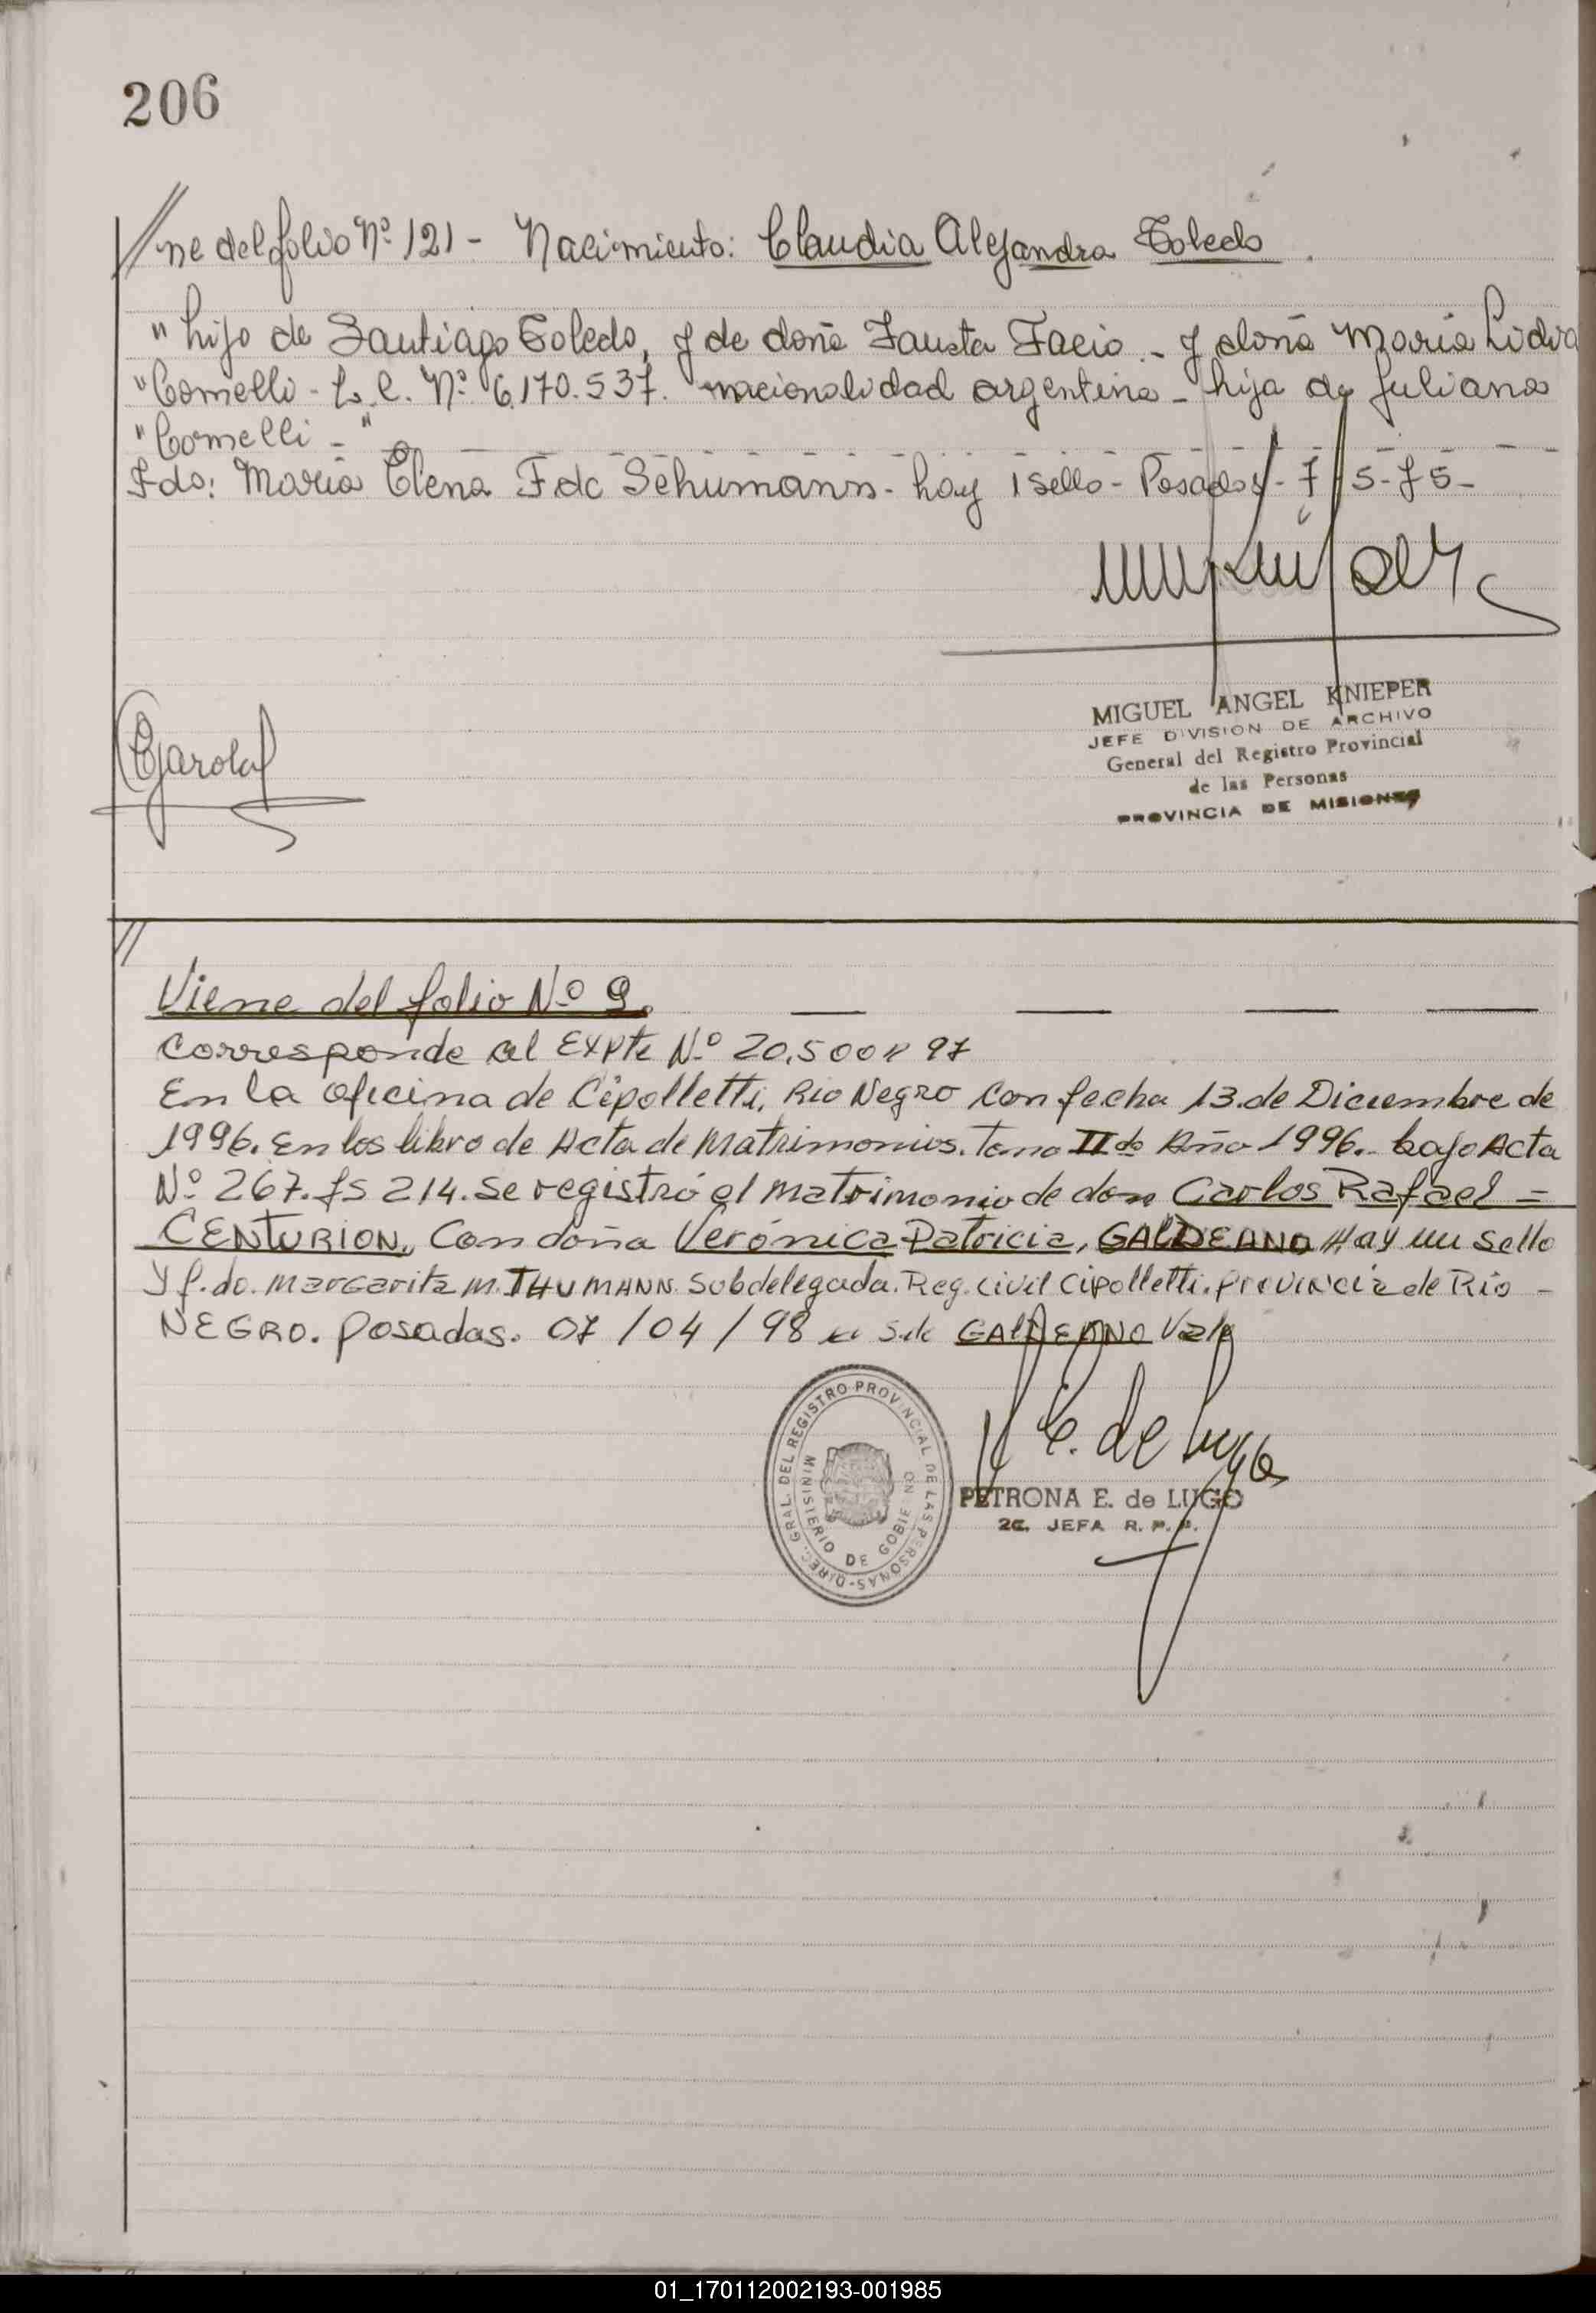 206
//ne del folio Nº 121 - Nacimiento: Claudia Alejandra Toledo.
"hijo de Santiago Toledo, y de doña Fausta Facio - y doña María Lidia
"Comelli - L.C. Nº 6.170.537. nacionalidad argentina - hija de Juliana
"Comelli - "
Fdo: María Elena F de Schumann - hay 1 sello - Posadas - 7-5-75-
MIGUEL ANGEL KNIEPER
JEFE DIVISION DE ARCHIVO
General del Registro Provincial
de las Personas
PROVINCIA DE MISIONES
//
Viene del folio Nº 9.
Corresponde al Expte Nº 20.500 97
En la oficina de Cipolletti, Rio Negro con fecha 13 de Diciembre de
1996. En los libro de Acta de Matrimonios. Tomo II do Año 1996.. bajo Acta
Nº 267. fs 214. Se registró el matrimonio de don Carlos Rafael =
CENTURION, Con doña Verónica Patricia, GALDEANO Hay un sello
y f.do. Margarita M. THUMANN. Subdelegada. Reg. civil Cipolletti. provincia de Río -
NEGRO. Posadas. 07/04/98 GALDEANO Vale
DIREC. GRAL. DEL REGISTRO PROVINCIAL DE LAS PERSONAS
MINISTERIO DE GOBIERNO
P. E. de Lugo
PETRONA E. de LUGO
2a. JEFA R. P. P.
01_170112002193-001985